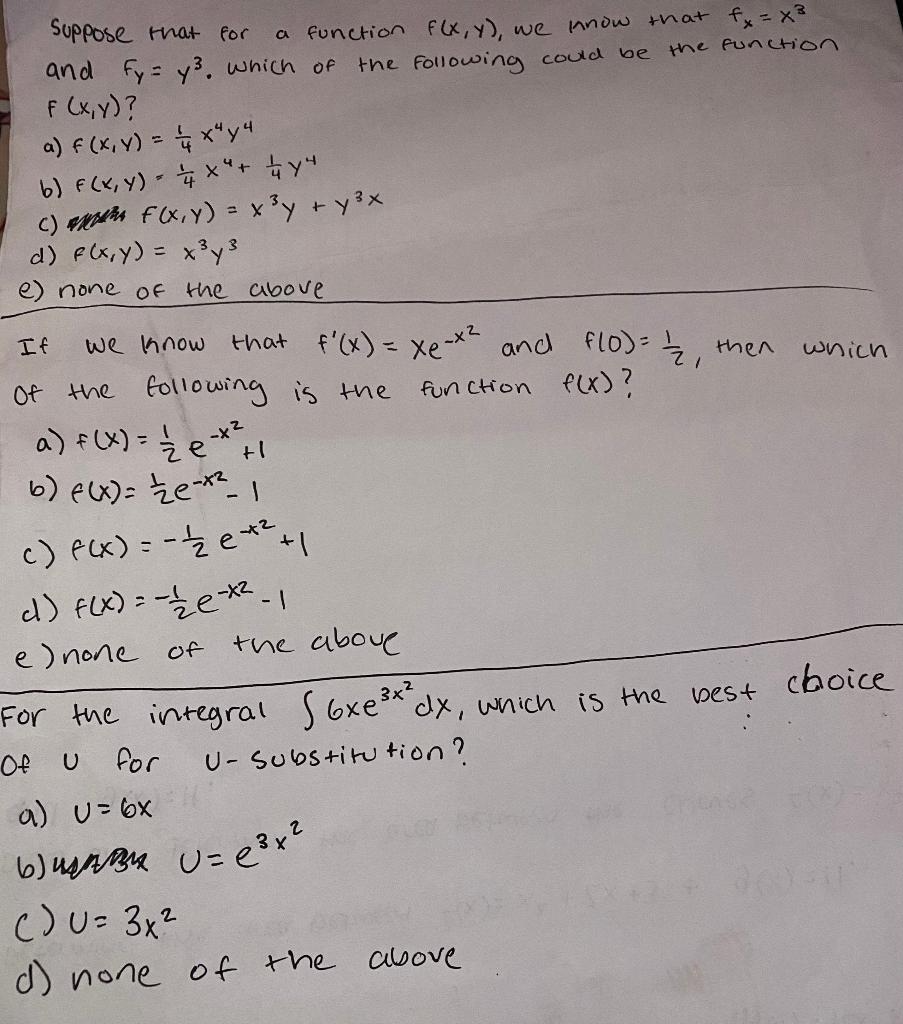 Suppose that for a function f(x,y), we know that fₓ = x³
and fᵧ = y³. which of the following could be the function
f(x,y)?
a) f(x,y) = 1/4 x⁴y⁴
b) f(x,y) = 1/4 x⁴ + 1/4 y⁴
c) f(x,y) = x³y + y³x
d) f(x,y) = x³y³
e) none of the above
If we know that f'(x) = xe^-x² and f(0) = 1/2, then which
of the following is the function f(x)?
a) f(x) = 1/2 e^-x² +1
b) f(x) = 1/2 e^-x² - 1
c) f(x) = -1/2 e^-x² +1
d) f(x) = -1/2 e^-x² - 1
e) none of the above
For the integral ∫ 6xe^3x² dx, which is the best choice
of u for u-substitution?
a) u = 6x
b) u = e^3x²
c) u = 3x²
d) none of the above